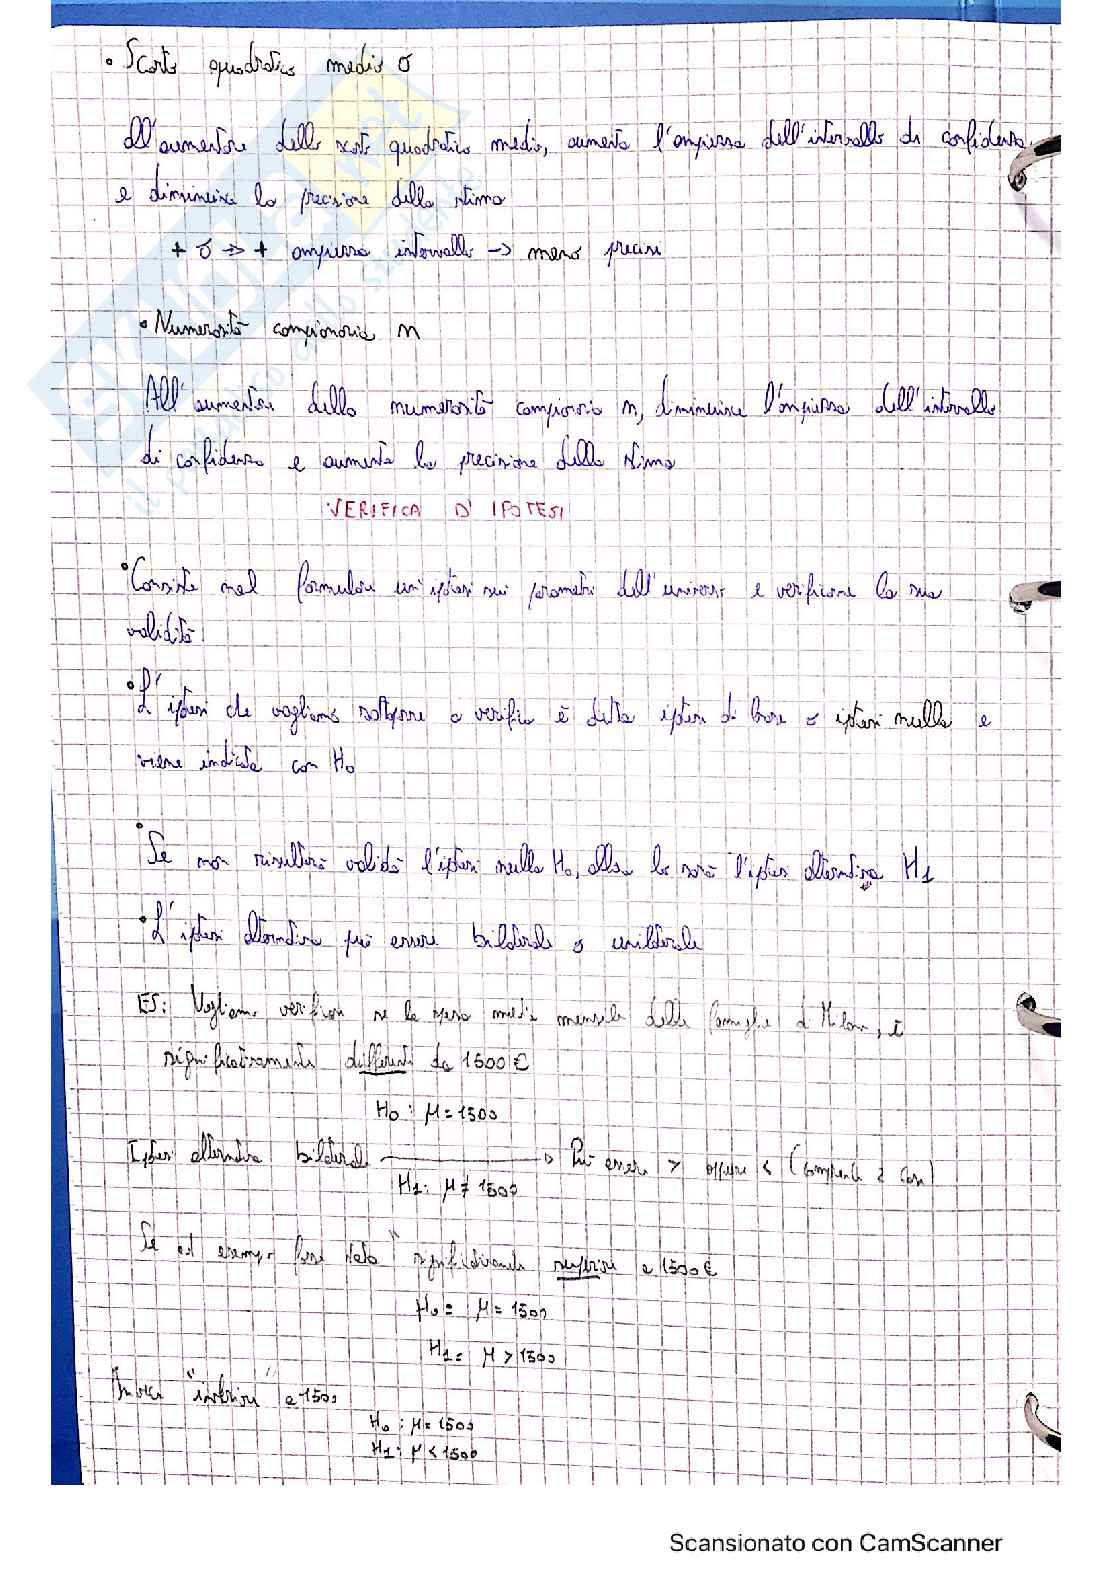 • Scarto quadratico medio σ
All'aumentare dello scarto quadratico medio, aumenta l'ampiezza dell'intervallo di confidenza
e diminuisce la precisione della stima
+ σ => + ampiezza intervallo -> meno precisi
• Numerosità campionaria n
All'aumentare della numerosità campionaria n, diminuisce l'ampiezza dell'intervallo
di confidenza e aumenta la precisione della stima
VERIFICA D'IPOTESI
• Consiste nel formulare un'ipotesi sui parametri dell'universo e verificarne la sua
validità
• L'ipotesi che vogliamo sottoporre a verifica è detta ipotesi di base o ipotesi nulla e
viene indicata con H₀
• Se non risulterà validà l'ipotesi nulla H₀, allora lo sarà l'ipotesi alternativa H1
• L'ipotesi alternativa può essere bilaterale o unilaterale
ES: Vogliamo verificare se la spesa media mensile delle famiglie di Milano, è
significativamente differente da 1500 €
H₀: μ = 1500
Ipotesi alternativa bilaterale -> Può essere > oppure < (comprende 2 casi)
H1: μ ≠ 1500
Se ad esempio fosse stato "significativamente superiore a 1500 €
H₀ = μ = 1500
H1 = μ > 1500
Invece "inferiore" a 1500
H₀: μ = 1500
H1: μ < 1500
Scansionato con CamScanner